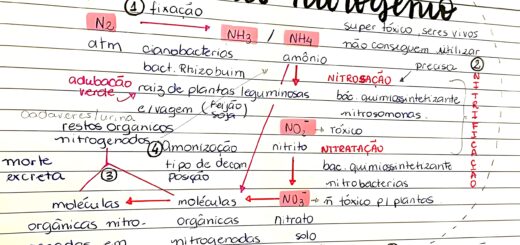 nitrogênio
① fixação
N2 → NH3 / NH4
super tóxico, seres vivos
não conseguem utilizar
atm
cianobactérias
amônio
precisa
②
NITRIFICAÇÃO
bact. Rhizobium
NITROSAÇÃO
adubação
verde
raiz de plantas leguminosas
bac. quimiossintetizante
e/vagem (feijão
soja)
nitrosomonas
cadáveres/urina
restos orgânicos
nitrogenados
NO2- → tóxico
④ Amonização
nitrito
NITRATAÇÃO
morte
excreta
tipo de decom
posição
bac. quimiossintetizante
nitrobacterias
③
moléculas
moléculas
NO3- → ñ tóxico p/ plantas
orgânicas nitro-
orgânicas
nitrato
em
nitrogenadas
solo